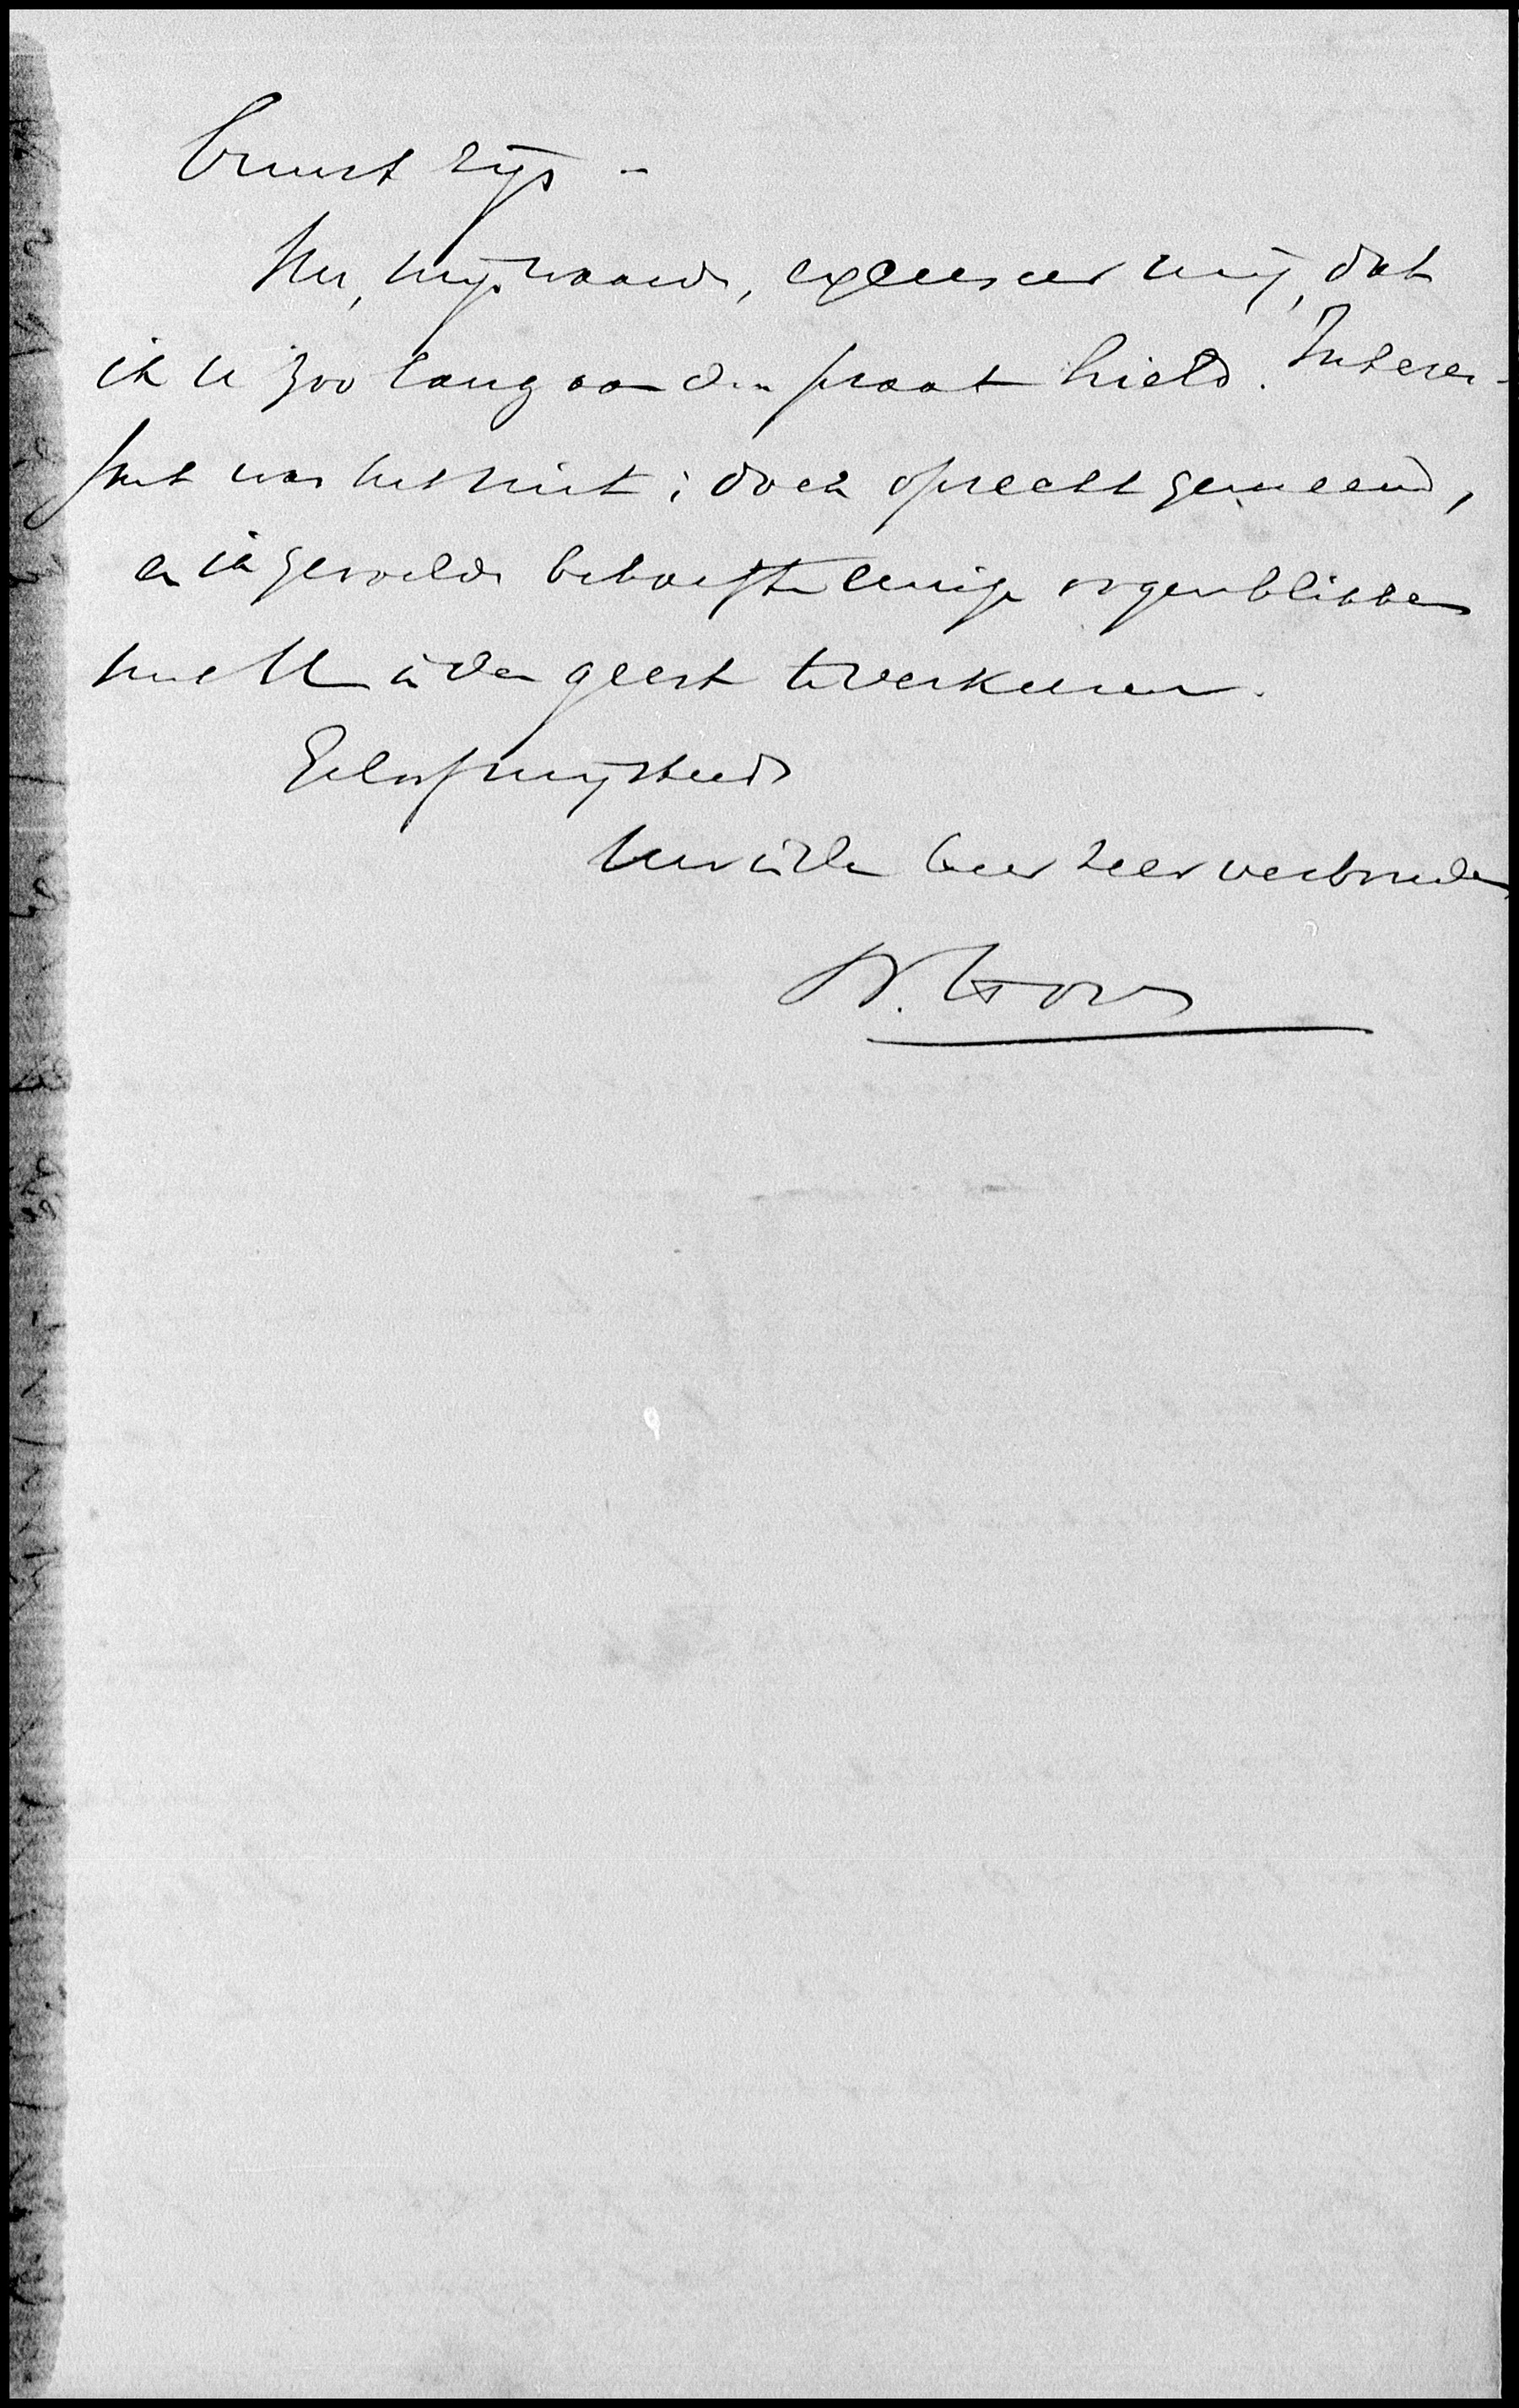 bewust zijn -
Nu, mijn waarde, excuseer mij, dat
ik U zoo lang aan den praat hield. Interes-
sant was het niet; doch oprecht gemeend,
en ik gevoelde behoefte eenige oogenblikken
met U in den geest te verkeeren.
Geloof mij steeds
Uw in den Heer zeer verbonden